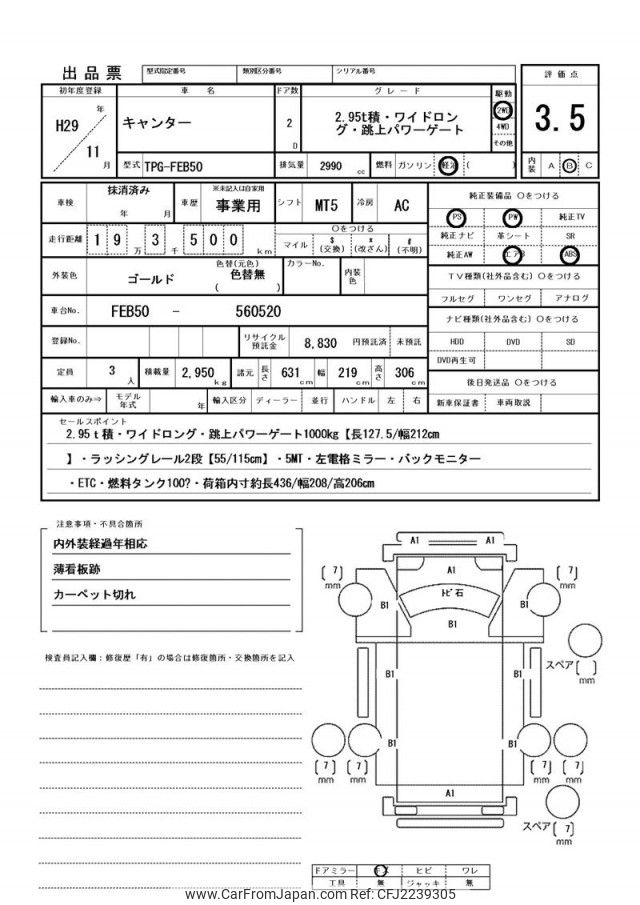 出品票
型式指定番号
類別区分番号
シリアル番号
初年度登録
車 名
ドア数
グレード
駆動
評価点
H29 年
11 月
キャンター
2 D
2.95t積・ワイドロン
グ・跳上パワーゲート
2WD
4WD
その他
3.5
型式 TPG-FEB50
排気量 2990 cc
燃料 ガソリン 軽油 ( )
内装 A B C
車検 抹消済み 年 月
車歴 ※未記入は自家用 事業用
シフト MT5
冷房 AC
純正装備品 〇をつける
PS PW 純正TV
純正ナビ 革シート SR
純正AW エアB ABS
走行距離 1 9 万 3 千 5 0 0 km
〇をつける
マイル $(交換) *(改ざん) #(不明)
外装色 ゴールド
色替(元色) 色替無 ( )
カラーNo.
内装色
TV種類(社外品含む) 〇をつける
フルセグ ワンセグ アナログ
車台No. FEB50 - 560520
ナビ種類(社外品含む) 〇をつける
HDD DVD SD
DVD再生可
登録No.
リサイクル預託金 8,830 円預託済 未預託
定員 3 人
積載量 2,950 kg
諸元 長さ 631 cm 幅 219 cm 高さ 306 cm
後日発送品 〇をつける
新車保証書 車両取説
輸入車のみ⇒ モデル年式 年
輸入区分 ディーラー 並行 ハンドル 左 右
セールスポイント
2.95t積・ワイドロング・跳上パワーゲート1000kg【長127.5/幅212cm
】・ラッシングレール2段【55/115cm】・5MT・左電格ミラー・バックモニター
・ETC・燃料タンク100?・荷箱内寸約長436/幅208/高206cm
注意事項・不具合箇所
内外装経過年相応
薄看板跡
カーペット切れ
検査員記入欄：修復歴「有」の場合は修復箇所・交換箇所を記入
A1 A1
A1
(7) mm
(7) mm
トビ石
B1 B1
B1
スペア( ) mm
B1 B1
B1 B1
(7) mm
(7) mm
(7) mm
(7) mm
A1
スペア(7) mm
ドアミラー キズ ヒビ ワレ
工具 無 ジャッキ 無
www.CarFromJapan.com Ref: CFJ2239305